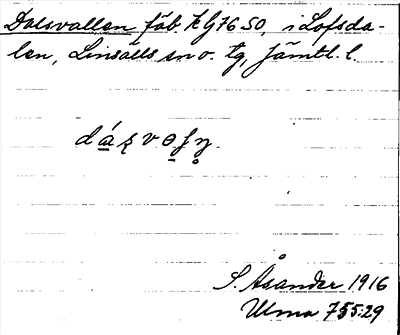 Dalsvallen fäb. KG 76 SO, i Lofsda-
len, Linsälls sn o. tg, Jämtl. l.
S. Åsander 1916
Ulma 755:29